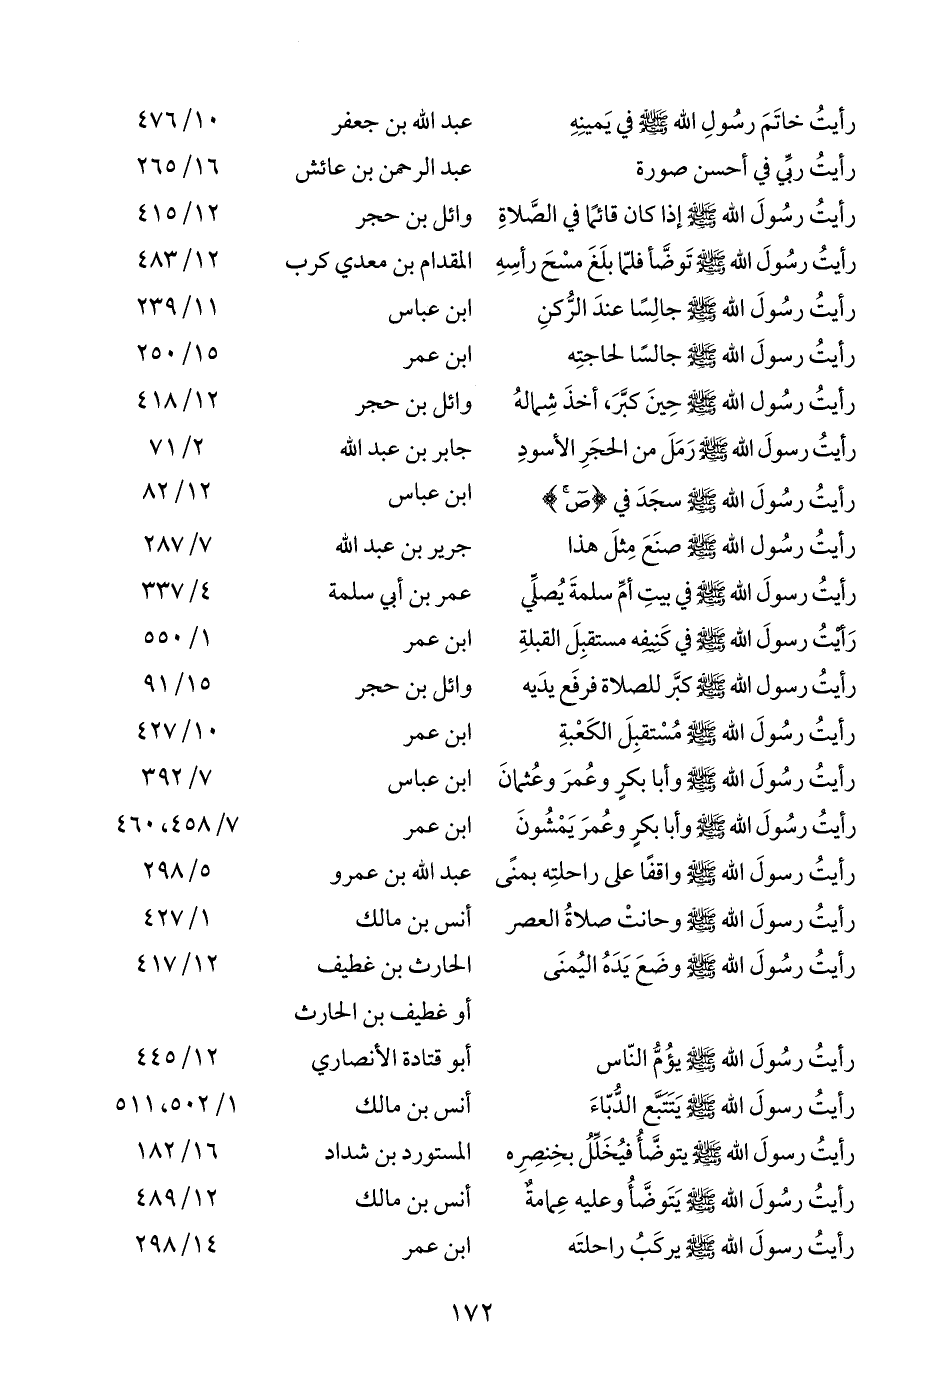 رأيتُ خاتَمَ رسُولِ الله ﷺ في يَمينِهِ عبد الله بن جعفر ١٠/ ٤٧٦
رأيتُ ربِّي في أحسن صورة عبد الرحمن بن عائش ١٦/ ٢٦٥
رأيتُ رسُولَ الله ﷺ إذا كان قائمًا في الصَّلاةِ وائل بن حجر ١٢/ ٤١٥
رأيتُ رسُولَ الله ﷺ تَوضَّأ فلمّا بلَغَ مسْحَ رأسِهِ المقدام بن معدي كرب ١٢/ ٤٨٣
رأيتُ رسُولَ الله ﷺ جالِسًا عندَ الرُّكنِ ابن عباس ١١/ ٢٣٩
رأيتُ رسولَ الله ﷺ جالسًا لحاجتِه ابن عمر ١٥/ ٢٥٠
رأيتُ رسُول الله ﷺ حِينَ كبَّرَ، أخذَ شِمالهُ وائل بن حجر ١٢/ ٤١٨
رأيتُ رسولَ الله ﷺ رَمَلَ من الحجَرِ الأسودِ جابر بن عبد الله ٢/ ٧١
رأيتُ رسُولَ الله ﷺ سجَدَ في ﴿صٓ ۚ﴾ ابن عباس ١٢/ ٨٢
رأيتُ رسُول الله ﷺ صنَعَ مِثلَ هذا جرير بن عبد الله ٧/ ٢٨٧
رأيتُ رسولَ الله ﷺ في بيتِ أمِّ سلمةَ يُصلِّي عمر بن أبي سلمة ٤/ ٣٣٧
رَأيْتُ رسولَ الله ﷺ في كَنِيفِه مستقبِلَ القبلةِ ابن عمر ١/ ٥٥٠
رأيتُ رسول الله ﷺ كبَّر للصلاة فرفَع يدَيه وائل بن حجر ١٥/ ٩١
رأيتُ رسُولَ الله ﷺ مُسْتقبِلَ الكَعْبةِ ابن عمر ١٠/ ٤٢٧
رأيتُ رسُولَ الله ﷺ وأبا بكرٍ وعُمرَ وعُثمانَ ابن عباس ٧/ ٣٩٢
رأيتُ رسُولَ الله ﷺ وأبا بكرٍ وعُمرَ يَمْشُونَ ابن عمر ٧/ ٤٥٨، ٤٦٠
رأيتُ رسولَ الله ﷺ واقفًا على راحلتِه بمنًى عبد الله بن عمرو ٥/ ٢٩٨
رأيتُ رسولَ الله ﷺ وحانتْ صلاةُ العصر أنس بن مالك ١/ ٤٢٧
رأيتُ رسُولَ الله ﷺ وضَعَ يَدَهُ اليُمنَى الحارث بن غطيف ١٢/ ٤١٧
أو غطيف بن الحارث
رأيتُ رسُولَ الله ﷺ يؤُمُّ النّاس أبو قتادة الأنصاري ١٢/ ٤٤٥
رأيتُ رسُولَ الله ﷺ يَتَتَبَّع الدُّبّاءَ أنس بن مالك ١/ ٥٠٢، ٥١١
رأيتُ رسولَ الله ﷺ يتوضَّأُ فيُخَلِّلُ بخِنصِرِه المستورد بن شداد ١٦/ ١٨٢
رأيتُ رسُولَ الله ﷺ يَتَوضَّأُ وعليه عِمامةٌ أنس بن مالك ١٢/ ٤٨٩
رأيتُ رسولَ الله ﷺ يركَبُ راحلتَه ابن عمر ١٤/ ٢٩٨
١٧٢